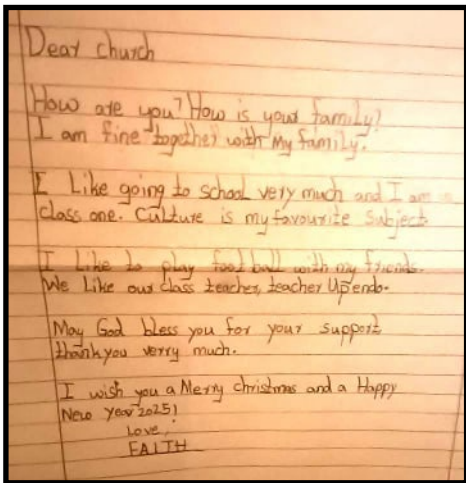 Dear church
How are you? How is your family?
I am fine together with my family.
I Like going to school very much and I am
class one. Culture is my favourite subject
I Like to play foot ball with my friends.
We Like our class teacher, teacher Upendo.
May God bless you for your support
thank you verry much.
I wish you a Merry christmas and a Happy
New Year 2025!
Love,
FAITH